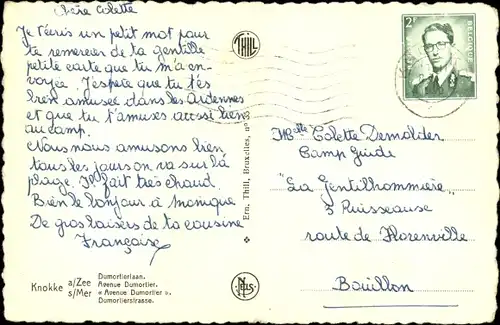 Chère Colette
Je t'écris un petit mot pour
te remercier de ta gentille
petite carte que tu m'a en-
voyée. J'espère que tu t'es
bien amusée dans les Ardennes
et que tu t'amuses aussi bien
au camp.
Nous nous amusons bien
tous les jours on va sur la
plage. Il fait très chaud.
Bien le bonjour à Monique
De gros baisers de ta cousine
Françoise
Knokke a/Zee
s/Mer
Dumortierlaan.
Avenue Dumortier.
« Avenue Dumortier ».
Dumortierstrasse.
THILL
Ern. Thill, Bruxelles, n°
NELS
2
BELGIQUE
Melle Colette Demolder
Camp Guide
"La Gentilhommière"
3 Ruisseause
route de Florenville
Bouillon